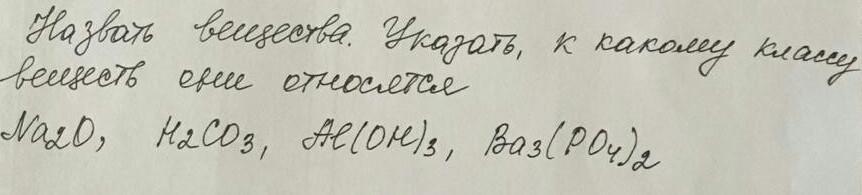 Назвать вещества. Указать, к какому классу
веществ они относятся
Na2O, H2CO3, Al(OH)3, Ba3(PO4)2